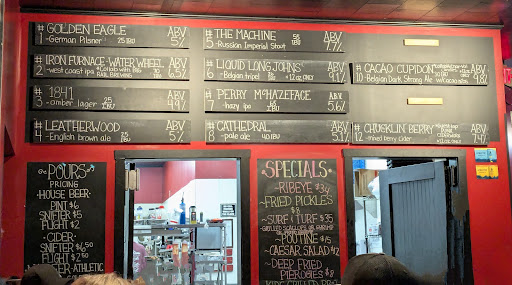 # 1 GOLDEN EAGLE ABV
-German Pilsner 25 IBU 5%
# 2 IRON FURNACE-WATER WHEEL ABV
-west coast ipa RAIL BREWING 6.5%
# 3 1841 ABV
-amber lager 25 IBU 4.9%
# 4 LEATHERWOOD ABV
-English brown ale 5%
# 5 THE MACHINE ABV
-Russian Imperial Stout 7.7%
# 6 LIQUID LONGJOHNS ABV
-Belgian tripel 9.1%
# 7 PERRY McHAZEFACE ABV
-hazy ipa 5.6%
# 8 CATHEDRAL ABV
-pale ale 40 IBU 5%
# 10 CACAO CUPIDON ABV
-Belgian Dark Strong Ale 9.8%
# 12 CHUCKLIN BERRY ABV
-mixed Berry Cider
~POURS~
PRICING
-HOUSE BEER-
PINT $6
SNIFTER $5
FLIGHT $2
-CIDER-
SNIFTER $6.50
FLIGHT $2.50
-BEER-ATHLETIC
SPECIALS
~RIBEYE $34
~FRIED PICKLES
$8
~SURF & TURF $35
~POUTINE $15
~CAESAR SALAD $12
~DEEP FRIED
PIEROGIES $8